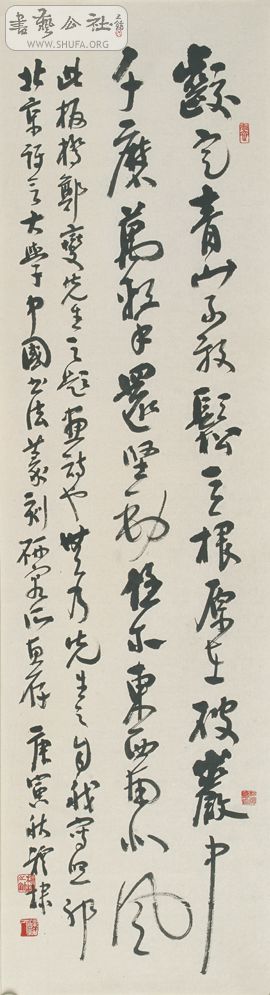 書藝公社
WWW.SHUFA.ORG
齩定青山不放鬆立根原在破巖中
千磨萬擊還堅勁任尔東西南北風
此板橋鄭燮先生之題畫詩也無乃先生之自我寫照耶
北京語言大學中國書法篆刻研究所惠存庚寅秋